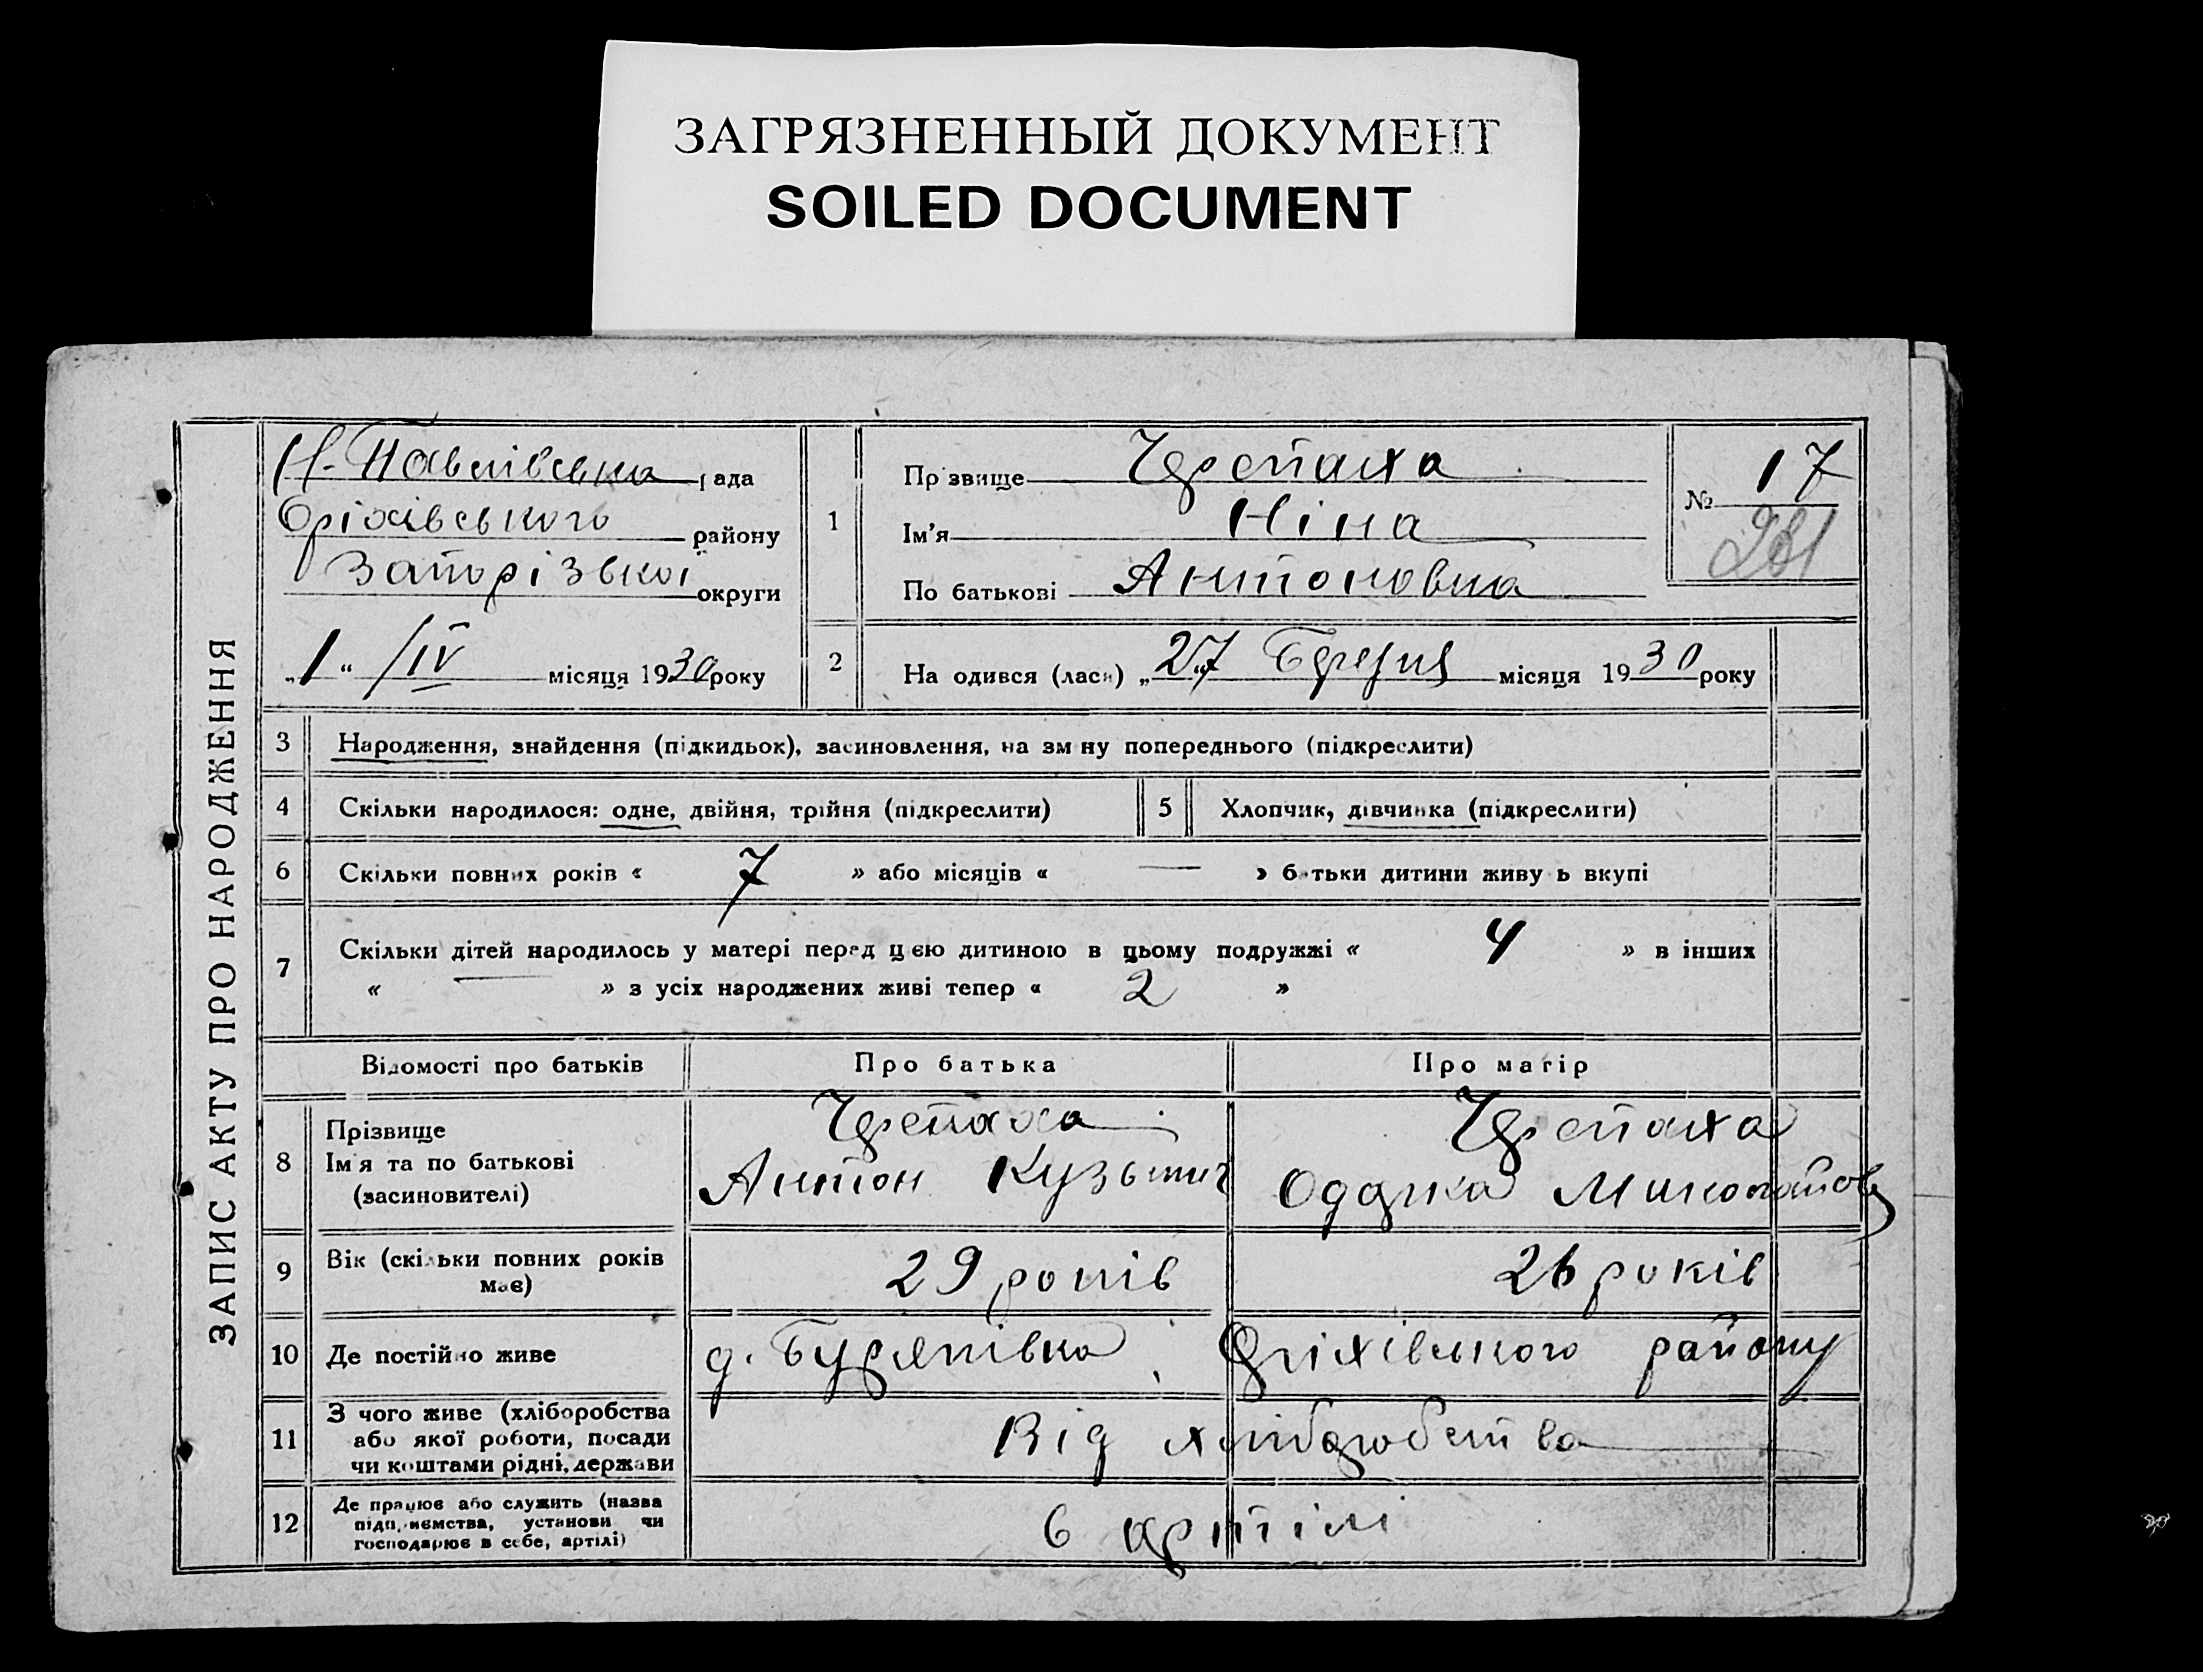 ЗАГРЯЗНЕННЫЙ ДОКУМЕНТ
SOILED DOCUMENT
ЗАПИС АКТУ ПРО НАРОДЖЕННЯ
Н-Павлівська рада
Оріхівського району
Запорізької округи
„1“ /IV місяця 1930 року
1
Прізвище Черепаха
Ім'я Ніна
По батькові Антоновна
№ 17
2
Народився (лася) „27“ Березня місяця 1930 року
3 Народження, знайдення (підкидьок), засиновлення, на зміну попереднього (підкреслити)
4 Скільки народилося: одне, двійня, трійня (підкреслити) 5 Хлопчик, дівчинка (підкреслити)
6 Скільки повних років « 7 » або місяців « — » батьки дитини живуть вкупі
7 Скільки дітей народилось у матері перед цією дитиною в цьому подружжі « 4 » в інших
« — » з усіх народжених живі тепер « 2 »
Відомості про батьків Про батька Про матір
8 Прізвище Черепаха Черепаха
Ім'я та по батькові Антон Кузьмич Одарка Миколайов
(засиновителі)
9 Вік (скільки повних років має) 29 років 26 років
10 Де постійно живе д. Бурляківка Оріхівського району
11 З чого живе (хліборобства
або якої роботи, посади Від хліборобства
чи коштами рідні, держави
12 Де працює або служить (назва
підприємства, установи чи в артілі
господарює в себе, артілі)